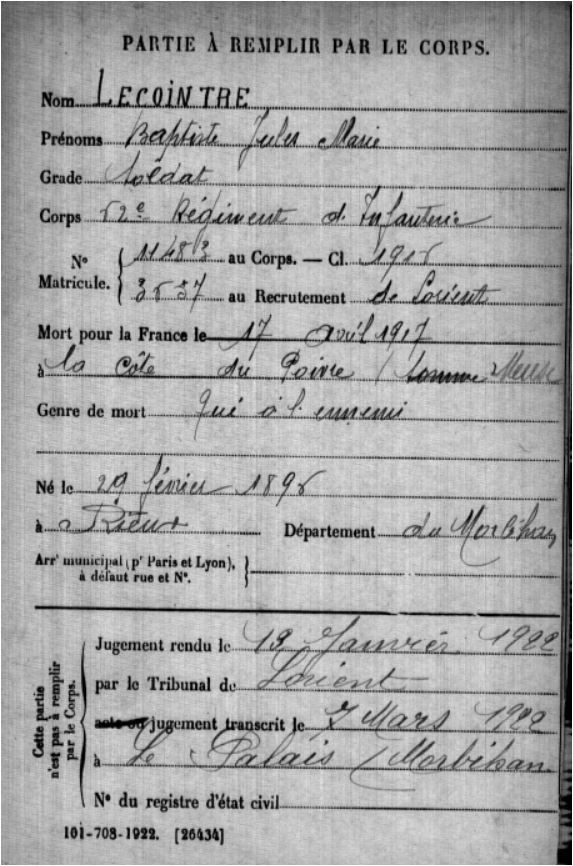 PARTIE À REMPLIR PAR LE CORPS.
Nom LECOINTRE
Prénoms Baptiste Jules Marie
Grade Soldat
Corps 62e Régiment d'Infanterie
N° Matricule. 11483 au Corps. — Cl. 1916
au Recrutement de Lorient
Mort pour la France le 17 avril 1917
à la côte du Poivre Meuse
Genre de mort Tué à l'ennemi
Né le 29 février 1896
à Rieux Département du Morbihan
Arrt municipal (pr Paris et Lyon),
à défaut rue et N°.
Cette partie
n'est pas à remplir
par le Corps.
Jugement rendu le Janvier 1922
par le Tribunal de Lorient
acte ou jugement transcrit le 7 Mars 1922
à Le Palais (Morbihan
N° du registre d'état civil
101-708-1922. [26434]